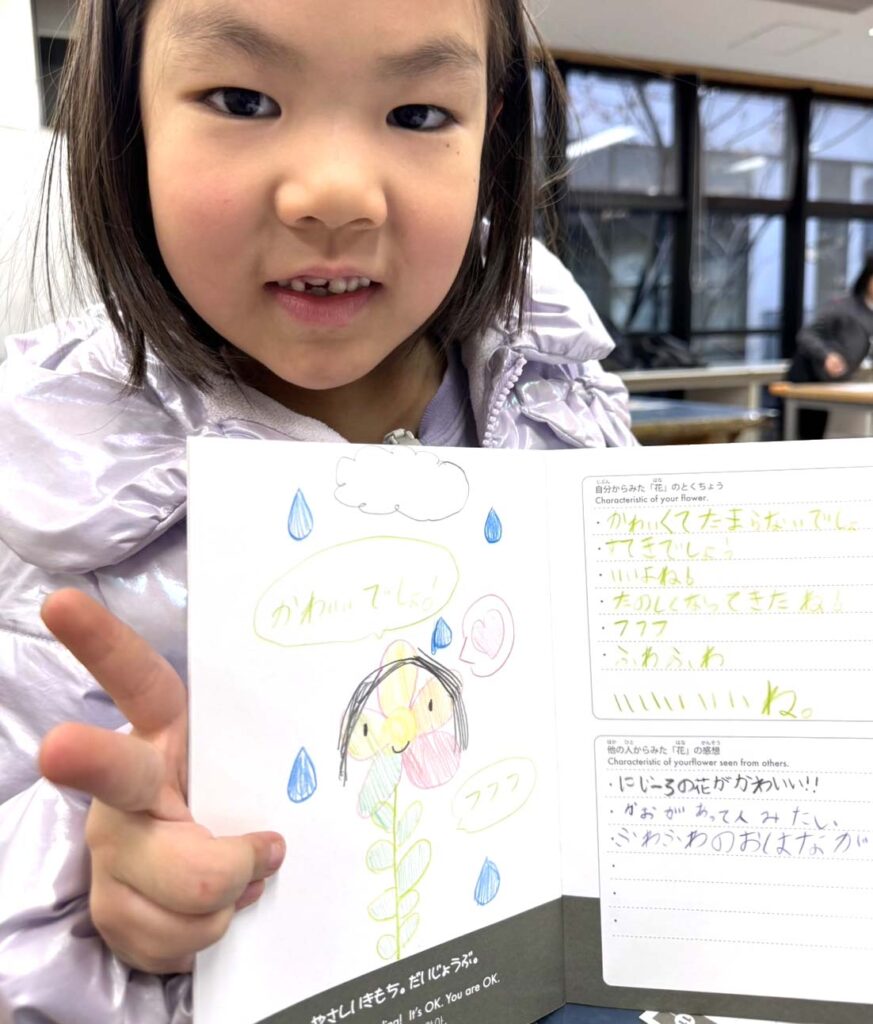 かわいいでしょ!
フフフ
やさしいきもち。だいじょうぶ。
It's OK. You are OK.
自分からみた「花」のとくちょう
Characteristic of your flower.
・かわいくてたまらないでしょ
・すてきでしょう
・いいよね!
・たのしくなってきたね!
・フフフ
・ふわふわ
いいいいいいね。
他の人からみた「花」の感想
Characteristic of yourflower seen from others.
・にじーろの花がかわいい!!
・かおがあって人みたい
・ふわふわのおはなが